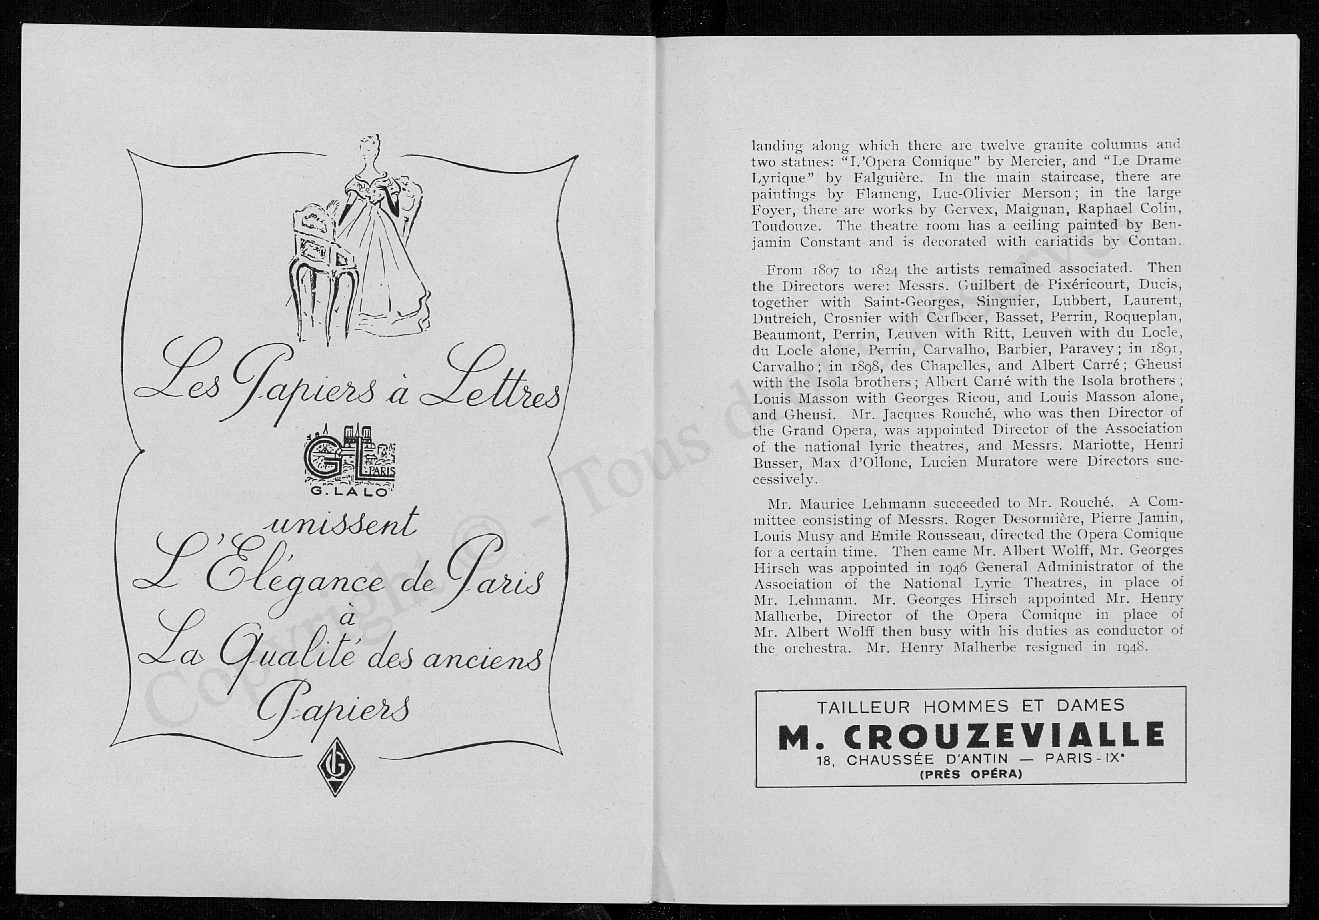 Les Papiers à Lettres
GL
PARIS
G. LALO
unissent
L'Elégance de Paris
à
La Qualité des anciens
Papiers
GL
landing along which there are twelve granite columns and
two statues: "L'Opera Comique" by Mercier, and "Le Drame
Lyrique" by Falguière. In the main staircase, there are
paintings by Flameng, Luc-Olivier Merson; in the large
Foyer, there are works by Gervex, Maignan, Raphael Colin,
Toudouze. The theatre room has a ceiling painted by Ben-
jamin Constant and is decorated with cariatids by Contan.
From 1807 to 1824 the artists remained associated. Then
the Directors were: Messrs. Guilbert de Pixéricourt, Ducis,
together with Saint-Georges, Singnier, Lubbert, Laurent,
Dutreich, Crosnier with Cerfbeer, Basset, Perrin, Roqueplan,
Beaumont, Perrin, Leuven with Ritt, Leuven with du Locle,
du Locle alone, Perrin, Carvalho, Barbier, Paravey; in 1891,
Carvalho; in 1898, des Chapelles, and Albert Carré; Gheusi
with the Isola brothers; Albert Carré with the Isola brothers;
Louis Masson with Georges Ricou, and Louis Masson alone,
and Gheusi. Mr. Jacques Rouché, who was then Director of
the Grand Opera, was appointed Director of the Association
of the national lyric theatres, and Messrs. Mariotte, Henri
Busser, Max d'Ollone, Lucien Muratore were Directors suc-
cessively.
Mr. Maurice Lehmann succeeded to Mr. Rouché. A Com-
mittee consisting of Messrs. Roger Desormière, Pierre Jamin,
Louis Musy and Emile Rousseau, directed the Opera Comique
for a certain time. Then came Mr. Albert Wolff, Mr. Georges
Hirsch was appointed in 1946 General Administrator of the
Association of the National Lyric Theatres, in place of
Mr. Lehmann. Mr. Georges Hirsch appointed Mr. Henry
Malherbe, Director of the Opera Comique in place of
Mr. Albert Wolff then busy with his duties as conductor of
the orchestra. Mr. Henry Malherbe resigned in 1948.
TAILLEUR HOMMES ET DAMES
M. CROUZEVIALLE
18, CHAUSSÉE D'ANTIN — PARIS-IXe
(PRÈS OPÉRA)
Copyright © - Tous droits réservés